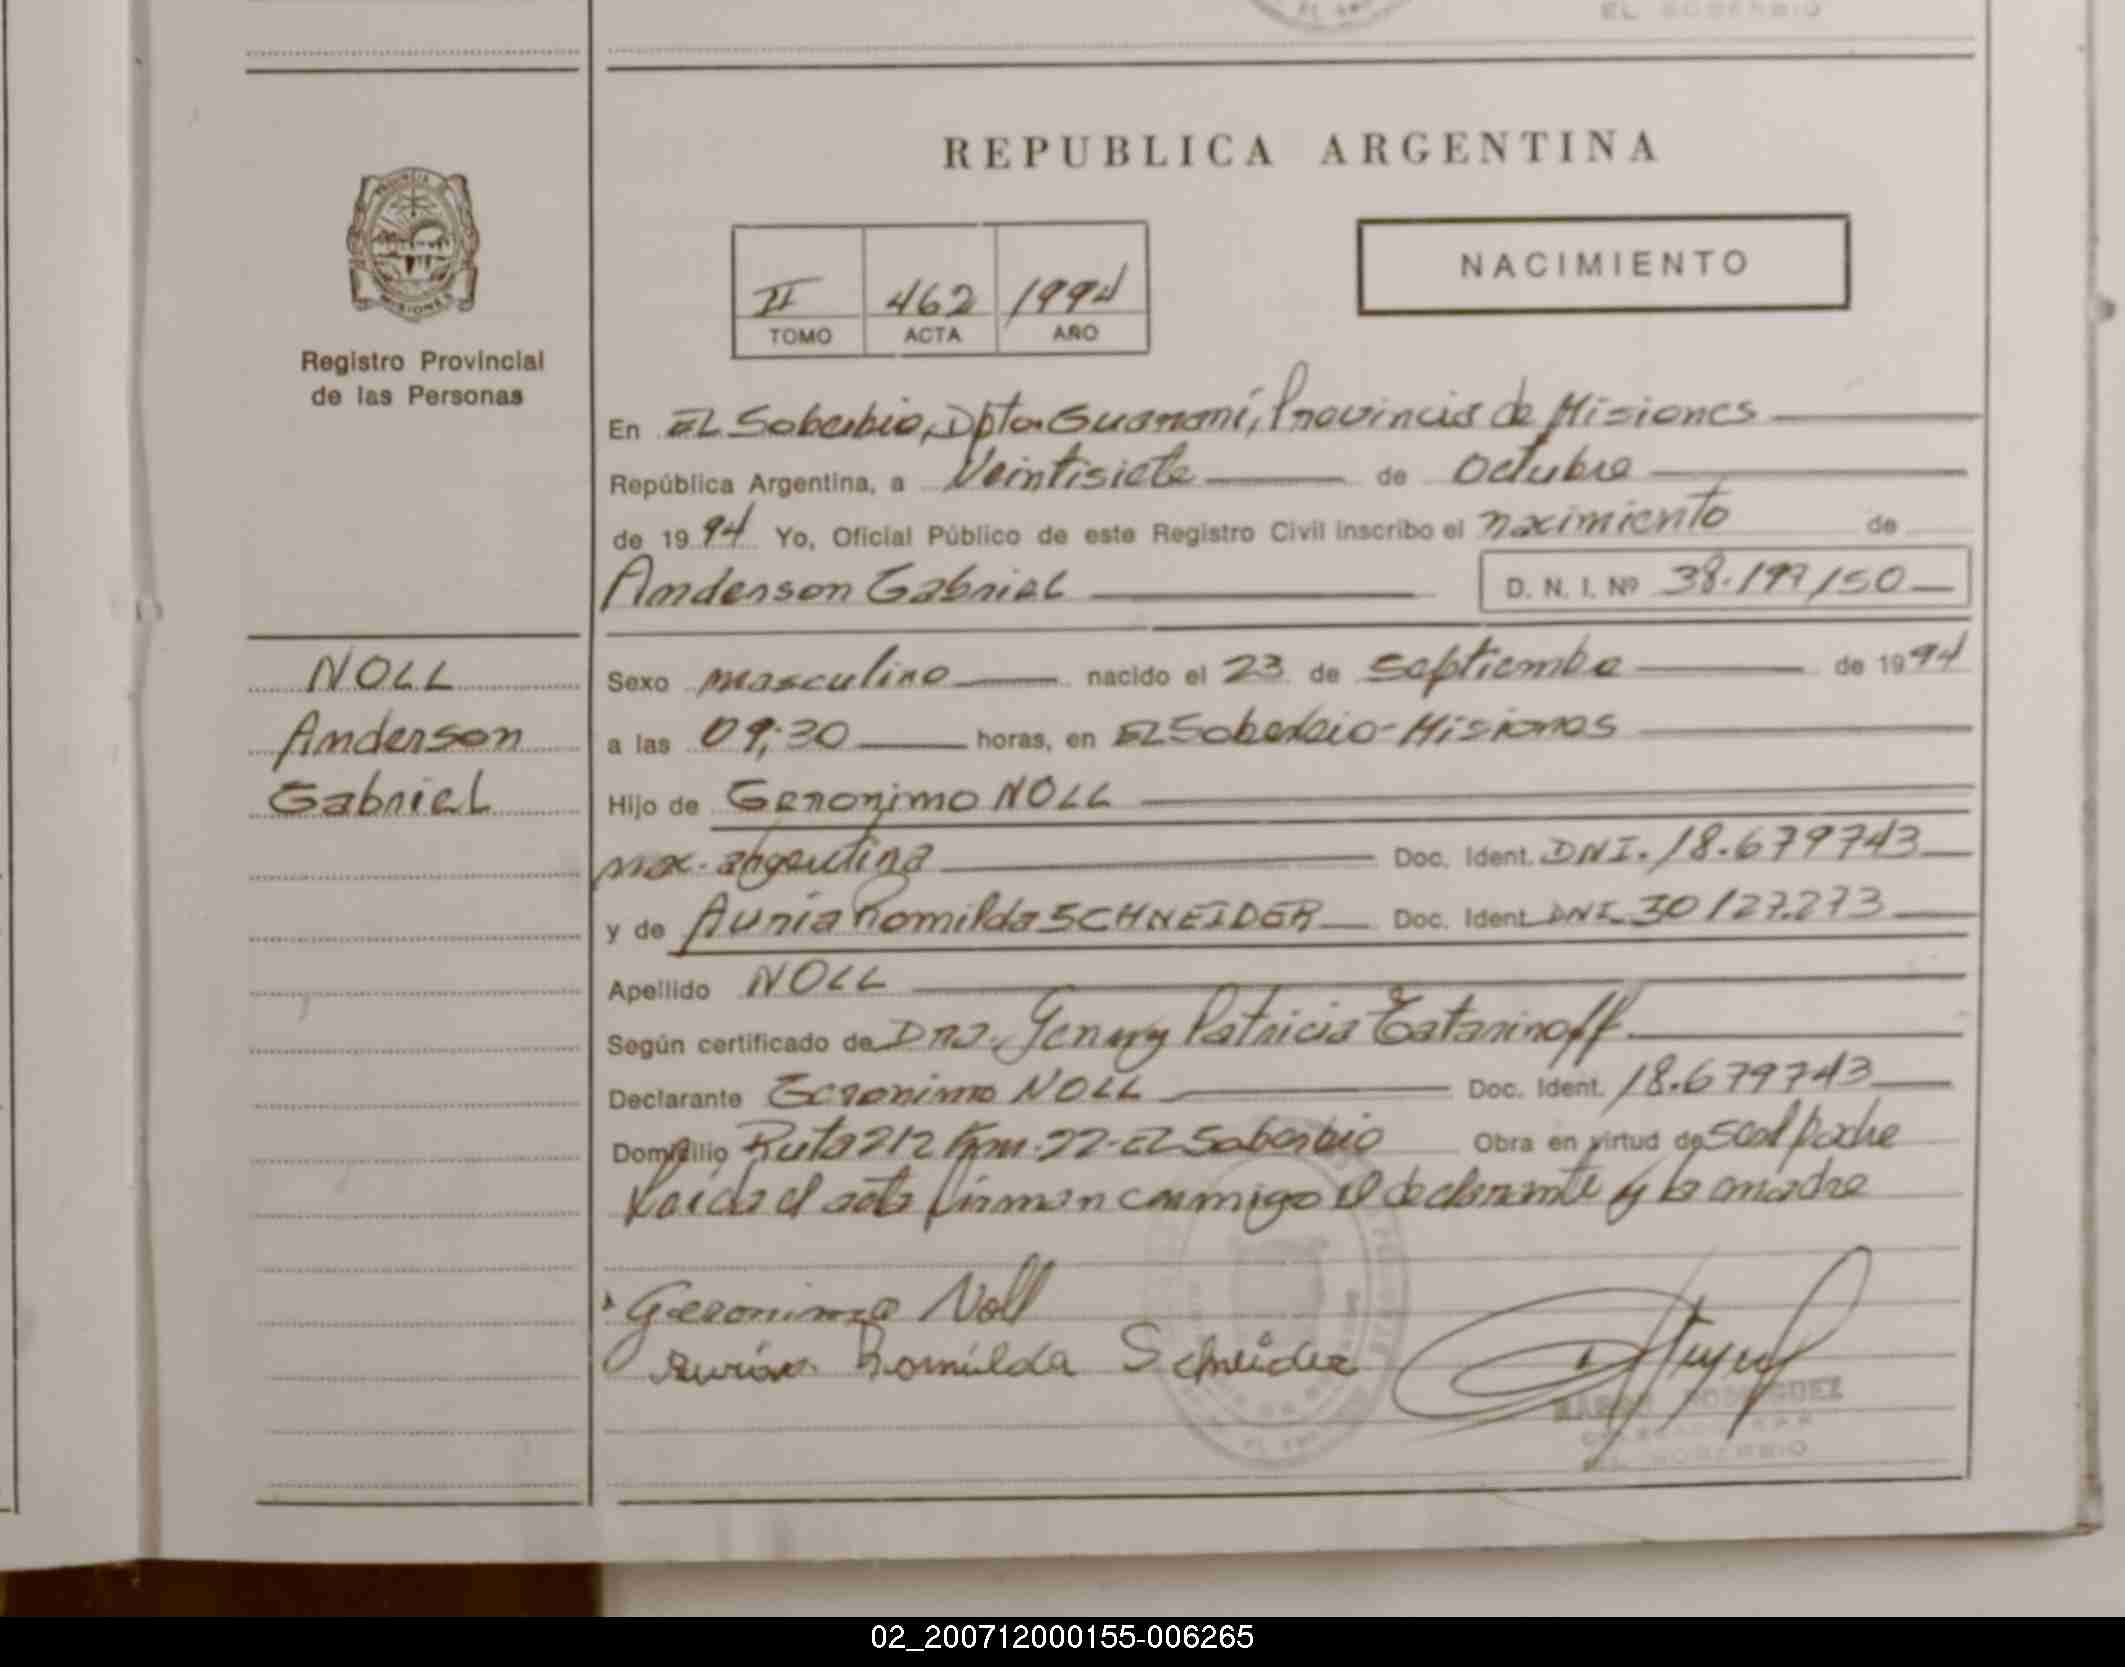 EL SOBERBIO
REPUBLICA ARGENTINA
PROVINCIA DE
MISIONES
Registro Provincial
de las Personas
II 462 1994
TOMO ACTA AÑO
NACIMIENTO
En EL Soberbio, Dpto Guaraní, Provincia de Misiones
República Argentina, a Veintisiete de Octubre
de 1994 Yo, Oficial Público de este Registro Civil inscribo el nacimiento de
Anderson Gabriel D. N. I. Nº 38.197150
NOLL
Anderson
Gabriel
Sexo masculino nacido el 23 de Septiembre de 1994
a las 09:30 horas, en EL Soberbio-Misiones
Hijo de Geronimo NOLL
nac. argentina Doc. Ident. DNI. 18.679743
y de Auria Romilda SCHNEIDER Doc. Ident DNI 30127.273
Apellido NOLL
Según certificado de Dra. Genny Patricia Tatarinoff
Declarante Geronimo NOLL Doc. Ident. 18.679743
Domicilio Ruta 212 Km. 22-EL Soberbio Obra en virtud de ser el padre
Leída el acta firman conmigo el declarante y la madre
Geronimo Noll
Auria Romilda Schneider
RODRIGUEZ
EL SOBERBIO
02_200712000155-006265